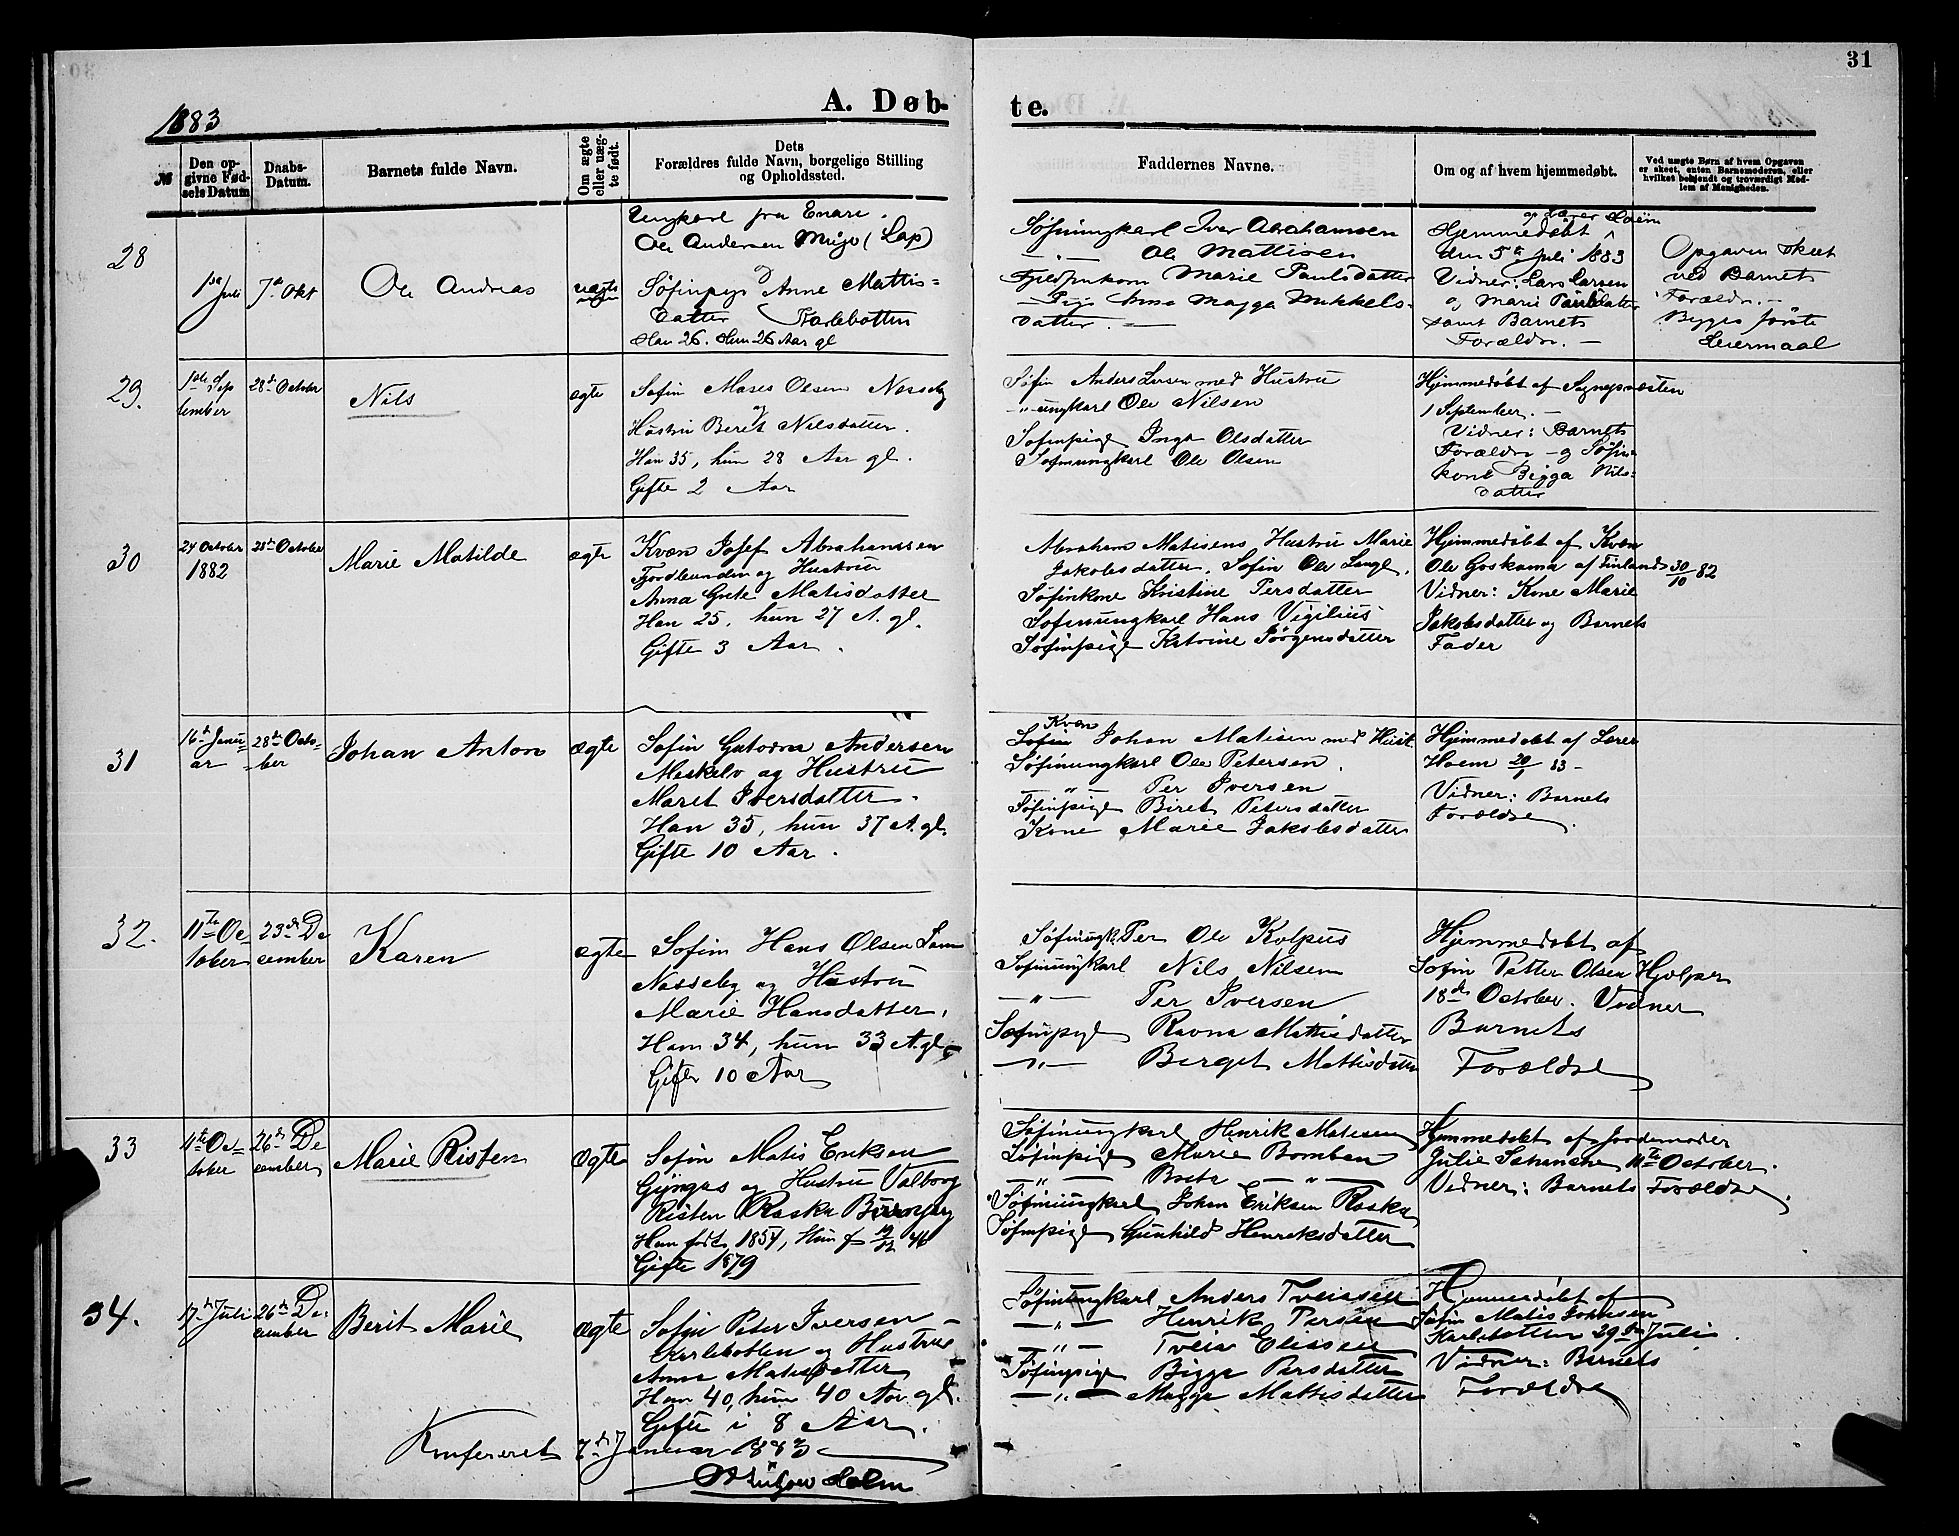 31
1883
A. Døb-
te.
№
Den op-
givne Fød-
sels Datum
Daabs-
Datum.
Barnets fulde Navn.
Om ægte
eller uæg-
te født.
Dets
Forældres fulde Navn, borgelige Stilling
og Opholdssted.
Faddernes Navne.
Om og af hvem hjemmedøbt.
Ved uægte Børn af hvem Opgaven
er skeet, enten Barnemoderen, eller
hvilket bekjendt og troværdigt Med-
lem af Menigheden.
28
1ste Juli
7de Okt
Ole Andreas
uægte
Ungkarl fra Enare.
Ole Andersen Mujo (Lap)
og
Søfinpige Anne Mattis=
datter Karlebotten
Han 26. Hun 26 Aar gl
Søfinungkarl Iver Abrahamsen
— " — Ole Mattisen
Fjeldfinkone Marie Paulsdatter
— Pige Anna Magga Mikkels-
datter. —
Hjemmedøbt af Lærer Hoëm
den 5te Juli 1883
Vidner: Lars Larsen
og Marie Paulsdatter
samt Barnets
Forældre. —
Opgaven skeet
ved Barnets
Forældr. —
Begges første
Leiermaal
29.
1ste Sep
tember
28de October
Nils
ægte
Søfin Moses Olsen Nesseby
og
Hustru Berit Nilsdatter.
Han 35, hun 28 Aar gl.
Gifte 2 Aar
Søfin Anders Larsen med Hustru
— " — ungkarl Ole Nilsen
Søfinpige Inga Olsdatter
Søfinungkarl Ole Olsen
Hjemmedøbt af Sognepræsten
1 September. —
Vidner: Barnets
Forældre — og Søfin-
kone Bigga Nils=
datter
30
24 October
1882
28de October
Marie Matilde
ægte
Kvæn Josef Abrahamsen
Fjordbunden og Hustru
Anna Grete Matisdatter
Han 25, hun 27 A. gl.
Gifte 3 Aar.
Abraham Matisens Hustru Marie
Jakobsdatter. Søfin Ole Lange.
Søfinkone Kristine Persdatter
Søfinungkarl Hans Vigilius
Søfinpige Katrine Jørgensdatter
Hjemmedøbt af Kvæn
Ole Goskama af Finland 30/10 82
Vidner: Kone Marie
Jakobsdatter og Barnets
Fader
31
16de Janu=
ar
28de Octo=
ber
Johan Anton
ægte
Søfin Andersen
Meskelv og Hustru
Marit Iversdatter.
Han 35, hun 37 A. gl.
Gifte 10 Aar.
Kvæn
Søfin Johan Matisen med Hust.
Søfinungkarl Ole Petersen.
— " — Per Iversen
Søfinpige Biret Petersdatter
Kone Marie Jakobsdatter
Hjemmedøbt af Lærer
Hoem 20/1 83 —
Vidner: Barnets
Forældre.
32.
11te Oc
tober
23de De
cember
Karen
ægte
Søfin Hans Olsen
Nesseby og Hustru
Marie Hansdatter,
Han 34, hun 33 A. gl.
Gifte 10 Aar
Søfinungk. Per Ole Kolpus
Søfinungkarl Nils Nilsen
— " — Per Iversen
Søfinpige Ravna Mattisdatter
— " — Berget Mattisdatter
Hjemmedøbt af
Søfin Petter Olsen Hjelper
18de October. Vidner
Barnets
Forældre
33
11te Oc
tober
26de De
cember
Marie Risten
ægte
Søfin Matis Eriksen
Gjingas og Hustru Valborg
Risten Raska
Han født 1854, Hun f
Gifte 1879
Søfinungkarl Henrik Matisen
Søfinpige Marie Bomban
— " — Breta — " —
Søfinungkarl Johan Eriksen Raska
Søfinpige Gunhild Henriksdatter
Hjemmedøbt af Jordemoder
Julie Schanche 11te October.
Vidner: Barnets Forældre.
34.
17de Juli
26de De
cember
Berit Marie
ægte
Søfin Peter Iversen —
Karlebotten og Hustru
Anna Matisdatter
Han 40, hun 40 Aar gl.
Gifte i 8 Aar.
Søfinungkarl Anders Tveisen
— " — Henrik Persen
— " — Tveis Eliassen
Søfinpige Bigga Persdatter
— " — Magga Mattisdatter
Hjemmedøbt af
Søfin Matis Johnsen
Karlebotten 29de Juli.
Vidner: Barnets
Forældre
Konfereret 7de Januar 1883
Holm